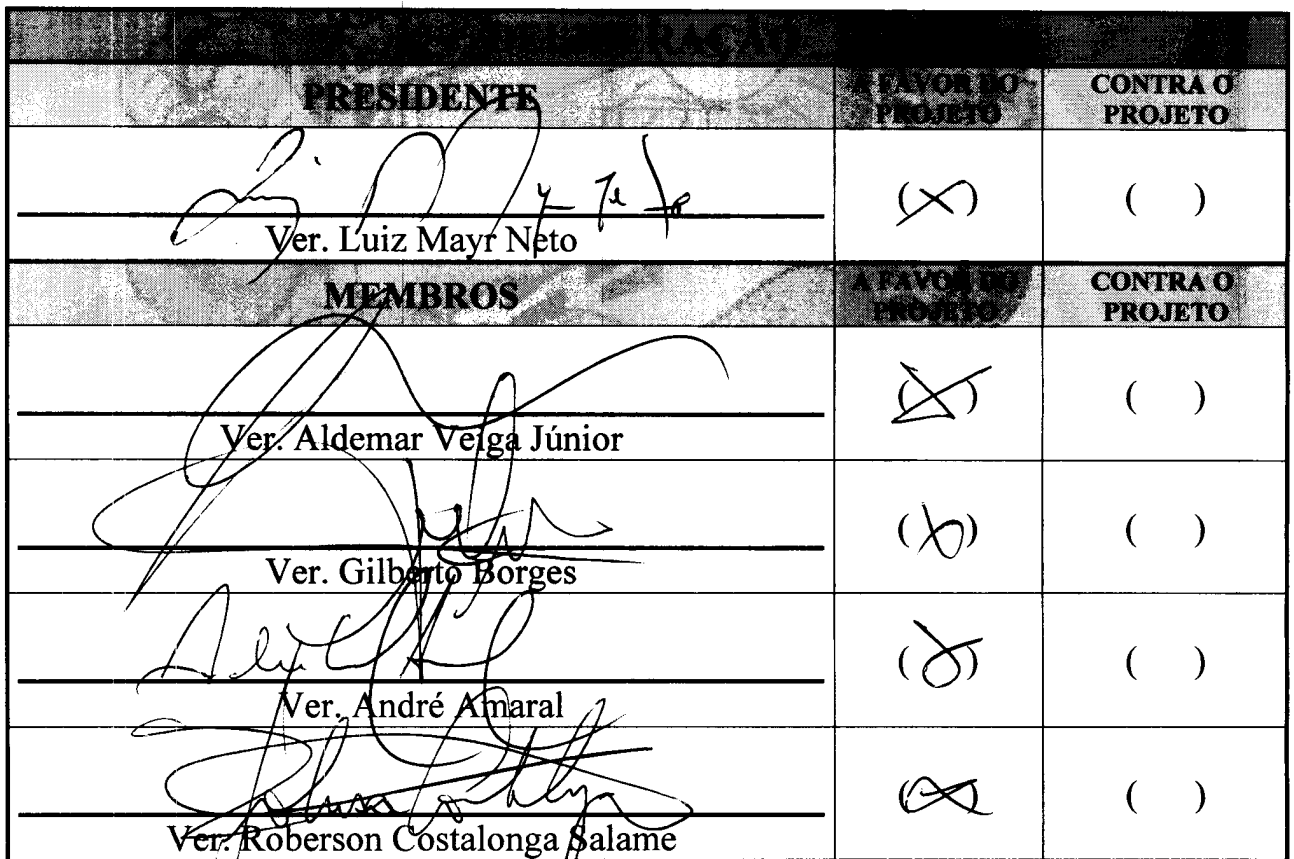 DELIBERAÇÃO
PRESIDENTE
A FAVOR DO
PROJETO
CONTRA O
PROJETO
Ver. Luiz Mayr Neto
(X)
( )
MEMBROS
A FAVOR DO
PROJETO
CONTRA O
PROJETO
Ver. Aldemar Veiga Júnior
(X)
( )
Ver. Gilberto Borges
(X)
( )
Ver. André Amaral
(X)
( )
Ver. Roberson Costalonga Salame
(X)
( )